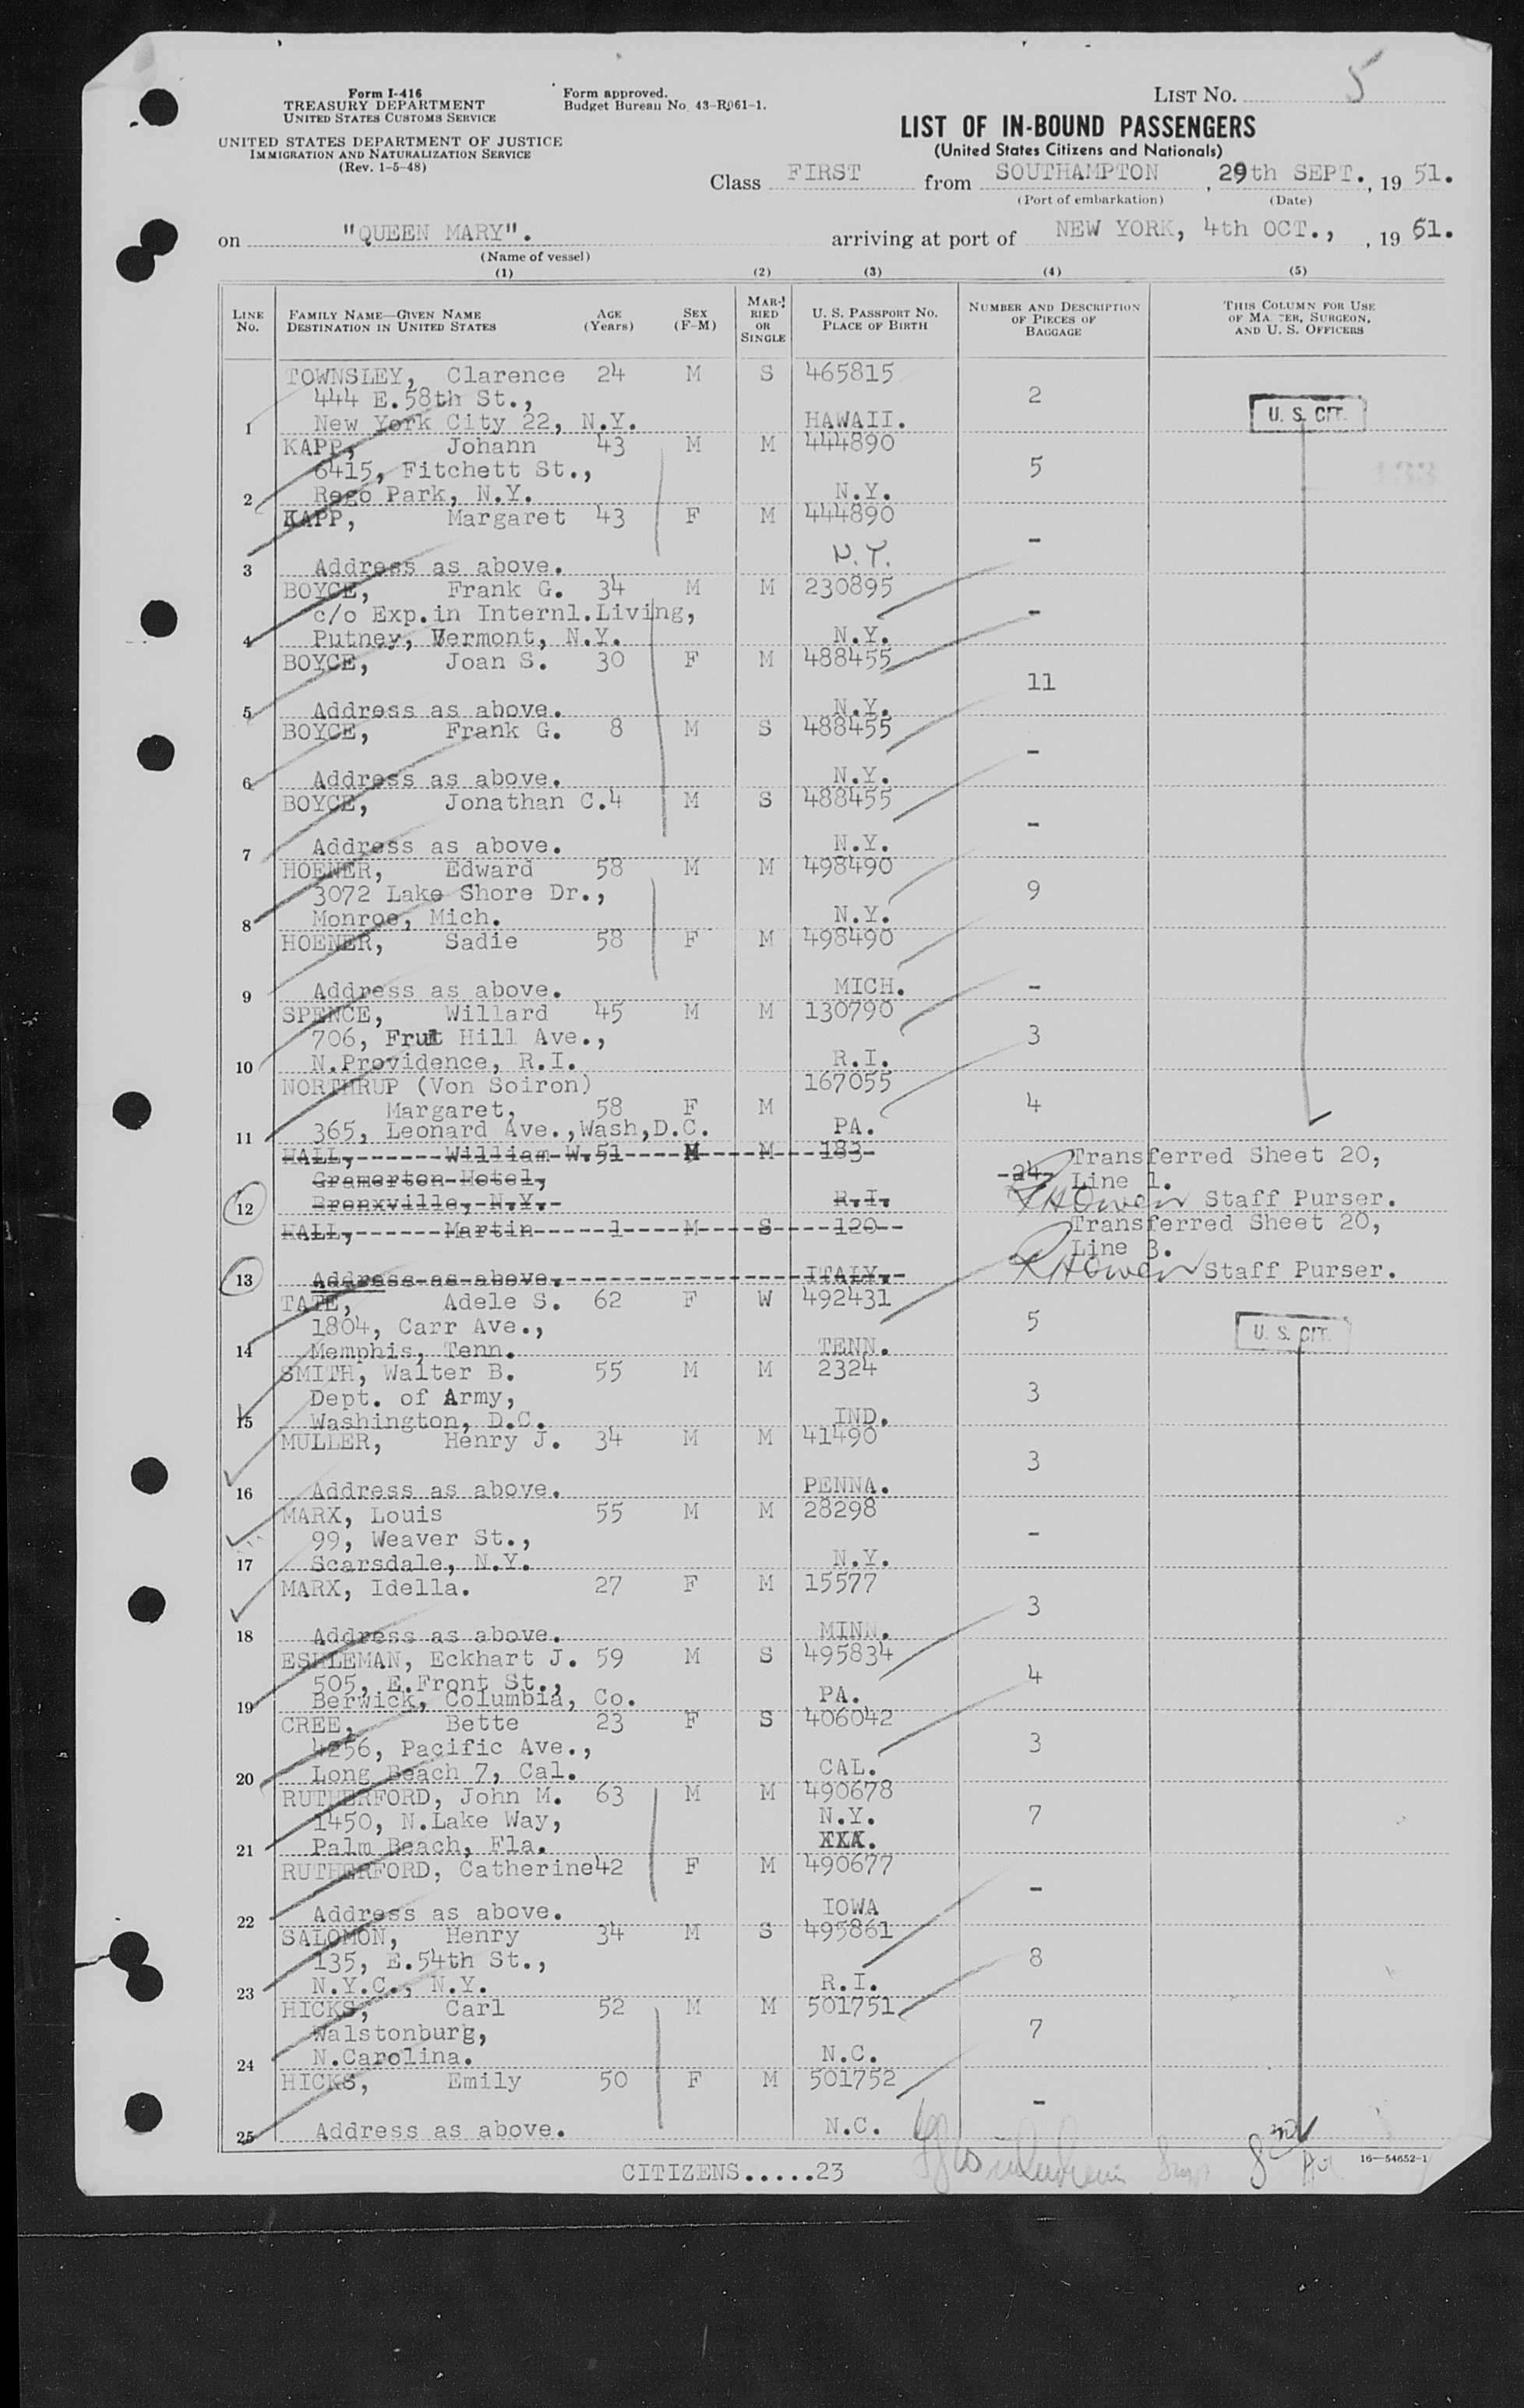 Form I-416
TREASURY DEPARTMENT
UNITED STATES CUSTOMS SERVICE
UNITED STATES DEPARTMENT OF JUSTICE
IMMIGRATION AND NATURALIZATION SERVICE
(Rev. 1-5-48)
Form approved.
Budget Bureau No. 43-R061-1.
LIST NO. 5
LIST OF IN-BOUND PASSENGERS
(United States Citizens and Nationals)
Class FIRST from SOUTHAMPTON, 29th SEPT., 19 51.
(Port of embarkation) (Date)
on "QUEEN MARY". arriving at port of NEW YORK, 4th OCT., , 19 51.
(Name of vessel)
(1) (2) (3) (4) (5)
LINE NO. FAMILY NAME—GIVEN NAME DESTINATION IN UNITED STATES AGE (Years) SEX (F-M) MARRIED OR SINGLE U. S. PASSPORT NO. PLACE OF BIRTH NUMBER AND DESCRIPTION OF PIECES OF BAGGAGE THIS COLUMN FOR USE OF MASTER, SURGEON, AND U. S. OFFICERS
TOWNSLEY, Clarence 24 M S 465815
444 E.58th St., 2 U. S. CIT.
1 New York City 22, N.Y. HAWAII.
KAPP, Johann 43 M M 444890
6415, Fitchett St., 5
2 Rego Park, N.Y. N.Y.
KAPP, Margaret 43 F M 444890
-
3 Address as above. N.Y.
BOYCE, Frank G. 34 M M 230895
c/o Exp.in Internl.Living, -
4 Putney, Vermont, N.Y. N.Y.
BOYCE, Joan S. 30 F M 488455
11
5 Address as above. N.Y.
BOYCE, Frank G. 8 M S 488455
-
6 Address as above. N.Y.
BOYCE, Jonathan C.4 M S 488455
-
7 Address as above. N.Y.
HOENER, Edward 58 M M 498490
3072 Lake Shore Dr., 9
8 Monroe, Mich. N.Y.
HOENER, Sadie 58 F M 498490
9 Address as above. MICH. -
SPENCE, Willard 45 M M 130790
706, Frut Hill Ave., 3
10 N.Providence, R.I. R.I.
NORTHRUP (Von Soiron) 167055
Margaret, 58 F M 4
11 365, Leonard Ave.,Wash,D.C. PA.
HALL, William W. 51 M M 183 Transferred Sheet 20,
Gramerton Hotel, -24- Line 1.
12 Bronxville, N.Y. R.I. RHOwen Staff Purser.
HALL, Martin 1 M S 120 Transferred Sheet 20,
Line 3.
13 Address as above. ITALY. RHOwen Staff Purser.
TATE, Adele S. 62 F W 492431
1804, Carr Ave., 5 U. S. CIT.
14 Memphis, Tenn. TENN.
SMITH, Walter B. 55 M M 2324
Dept. of Army, 3
15 Washington, D.C. IND.
MULLER, Henry J. 34 M M 41490
3
16 Address as above. PENNA.
MARX, Louis 55 M M 28298
99, Weaver St., -
17 Scarsdale, N.Y. N.Y.
MARX, Idella. 27 F M 15577
3
18 Address as above. MINN.
ESHLEMAN, Eckhart J. 59 M S 495834
505, E.Front St., 4
19 Berwick, Columbia, Co. PA.
CREE, Bette 23 F S 406042
4256, Pacific Ave., 3
20 Long Beach 7, Cal. CAL.
RUTHERFORD, John M. 63 M M 490678
1450, N.Lake Way, N.Y. 7
21 Palm Beach, Fla. XXX.
RUTHERFORD, Catherine42 F M 490677
-
22 Address as above. IOWA
SALOMON, Henry 34 M S 495861
135, E.54th St., 8
23 N.Y.C., N.Y. R.I.
HICKS, Carl 52 M M 501751
Walstonburg, 7
24 N.Carolina. N.C.
HICKS, Emily 50 F M 501752
-
25 Address as above. N.C.
CITIZENS.....23
16—54652-1